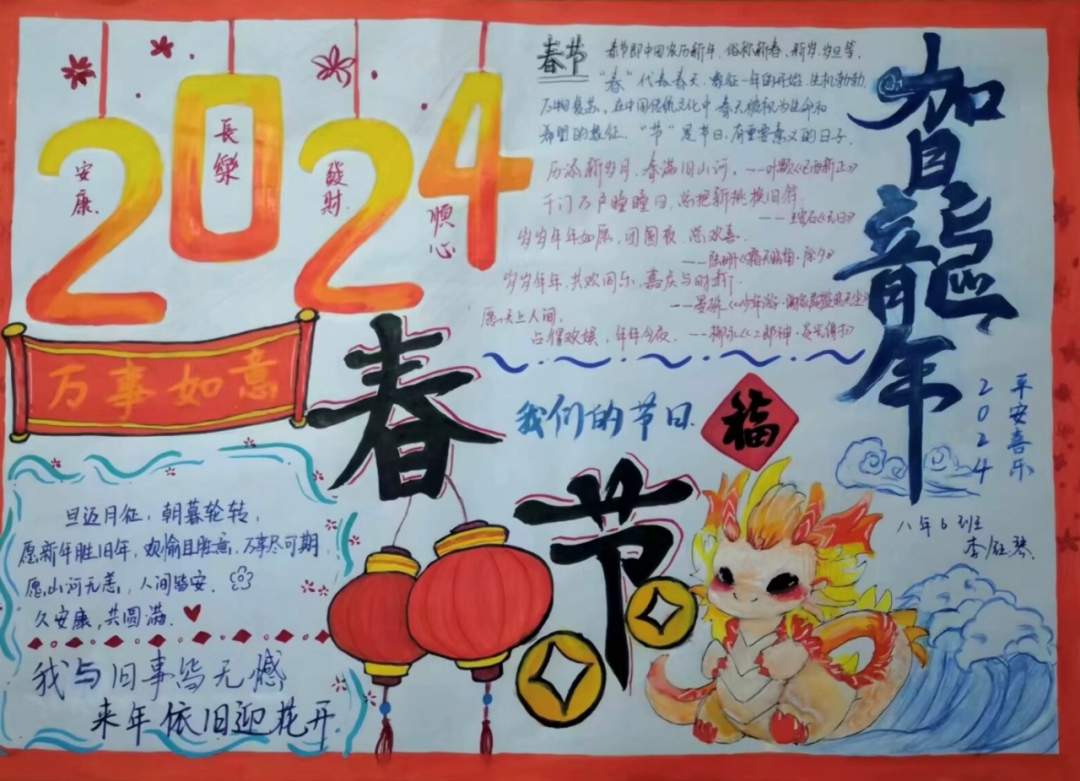 2024
安康
長樂
發財
順心
万事如意
春节
春节即中国农历新年、俗称新春、新岁、岁旦等,
“春”代表春天,象征一年的开始,生机勃勃,
万物复苏,在中国传统文化中春天被视为生命和
希望的象征。“节”是节日,有重要意义的日子.
历添新岁月,春满旧山河。——叶颙《己酉新正》
千门万户曈曈日,总把新桃换旧符.
——王安石《元日》
岁岁年年如愿,团圆夜 总欢喜.
岁岁年年,共欢同乐,嘉庆与时新.
愿天上人间,
占得欢娱,年年今夜.——柳永《二郎神·炎光谢》
賀龍年
平安喜乐
2024
春节
我们的节日
福
八年6班
李
旦迈月征,朝暮轮转,
愿新年胜旧年,欢愉且胜意,万事尽可期
愿山河无恙,人间皆安.
久安康,共圆满.
我与旧事皆无憾
来年依旧迎花开